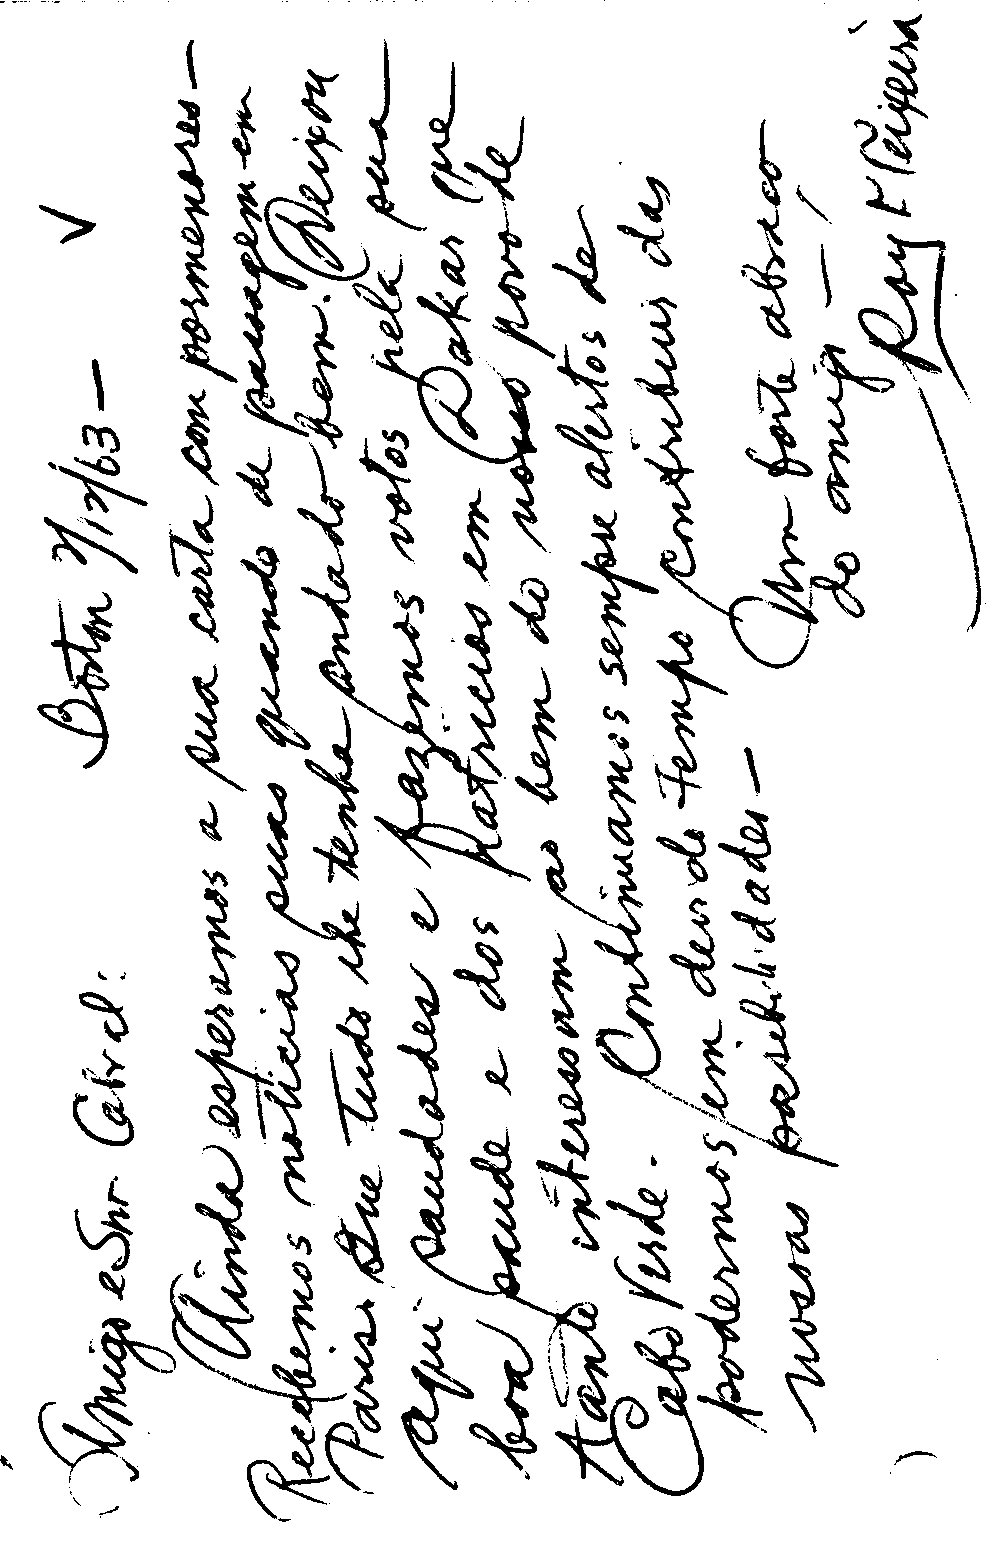 Amigo e Snr Cabral: Boston 2/12/63 —
Ainda esperamos a sua carta com pormenores —
Recebemos noticias suas quando de passagem em
Paris. Que tudo lhe tenha andado bem. Deixou
aqui saudades e fazemos votos pela sua
boa saude e dos patricios em Dakar que
tanto interessam ao bem do nosso povo de
Cabo Verde. Continuamos sempre alertos de
podermos em devido tempo contribuir das
nossas possibilidades —
Um forte abraço
do amigo —
Roy F Teixeira